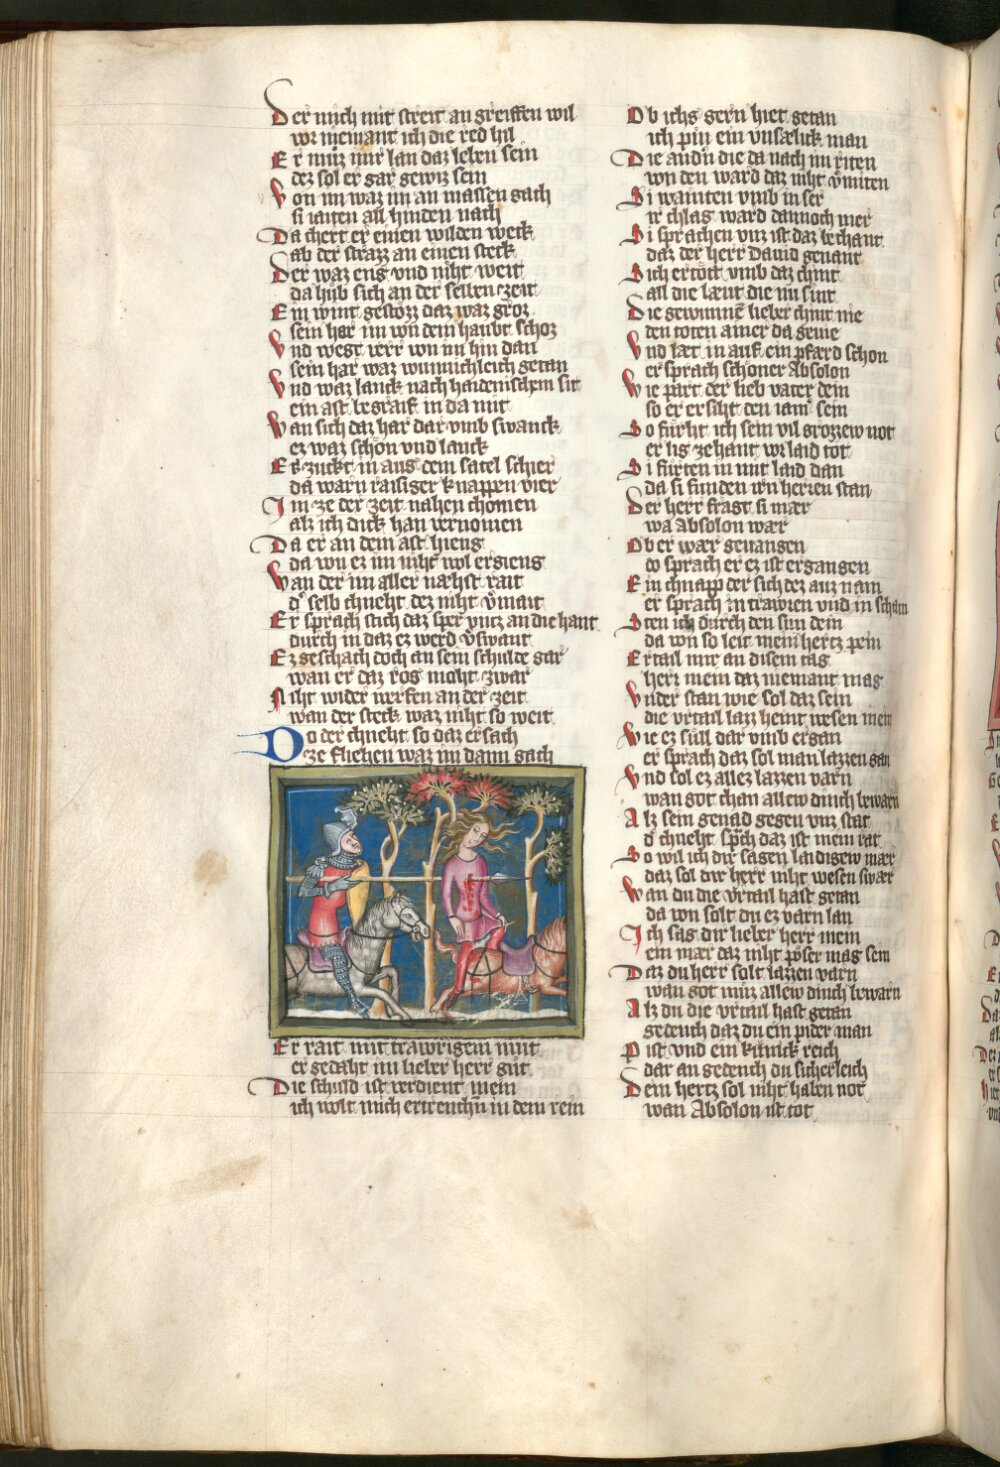 Der mich mit streit an greiffen wil
vor niemant ich die red hil
Er můz mir lan daz leben sein
dez sol er gar gewiz sein
Von im waz im an massen gach
si iaiten all hinden nach
Da chert er einen wilden weck
ab der strazz an einen steck
Der waz eng vnd niht weit
da hůb sich an der selben zeit
Ein wint gestözz daz waz groz
sein har im von dem haubt schoz
Vnd weet verr von im hin dan
sein har waz wunnichleich getan
Vnd waz lanck nach haidenischem sit
ein ast begraif in da mit
Wan sich daz har dar vmb swanck
ez waz schön vnd lanck
Er zuckt in aus dem satel schier
da warn raisiger knappen vier
Im ze der zeit nahen chomen
alz ich dick han vernomen
Da er an dem ast hieng
da von ez im niht wol ergieng
Wan der im aller næhst rait
d' selb chneht dez niht v'mait
Er sprach stich daz sper vntz an die hant
durch in daz ez werd v'swant
Ez geschach doch an sein schulde gar
wan er daz ros moht zwar
Niht wider werfen an der zeit
wan der steck waz niht so weit
Do der chneht so daz ersach
ze fliehen waz im dann gach
Er rait mit trawrigem můt
er gedaht im lieber herr gůt
Die schuld ist verdient mein
ich wolt mich ertrenchn̄ in dem rein
Ob ichs gern hiet getan
ich pin ein vnsælick man
Die andn̄ die da nach im riten
von den ward daz niht v'miten
Si wainten vmb in ser
ir chlag ward dannoch mer
Si sprachen vnz ist daz bechant
daz der herr Dauid genant
Sich ertött vmb daz chint
all die læut die nu sint
Die gewunnē lieber chint nie
den toten ainer da gevie
Vnd læt in auf ein pfærd schon
er sprach schöner Absolon
Wie part der lieb vater dein
so er ersiht den iam' sein
So fürht ich sein vil grozzew not
er lig zehant vor laid tot
Si fürten in mit laid dan
da si funden irn herren stan
Der herr fragt si mær
wa Absolon wær
Ob er wær geuangen
do sprach er ez ist ergangen
Ein chnapp der sich dez auz nam
er sprach in trawren vnd in scham
Sten ich durch den sun dein
da von so leit mein hertz pein
Ertail mir an disem tag
herr mein daz niemant mag
Vnder stan wie sol daz sein
die vrtail lazz heint wesen mein
Wie ez süll dar vmb ergan
er sprach daz sol man lazzen gan
Vnd sol ez allez lazzen varn
wan got chan allew dinch bewarn
Alz sein genad gegen vnz stat
d' chneht sp̄ch daz ist mein rat
So wil ich dir sagen laidigew mær
daz sol dir herr niht wesen swær
Wan du die vrtail hast getan
da von solt du ez varn lan
Ich sag dir lieber herr mein
ein mær daz niht pöser mag sein
Daz du herr solt lazzen varn
wan got můz allew dinch bewarn
Alz du die vrtail hast getan
gedench daz du ein pider man
Pist vnd ein künick reich
dar an gedench du sicherleich
Dein hertz sol niht haben not
wan Absolon ist tot